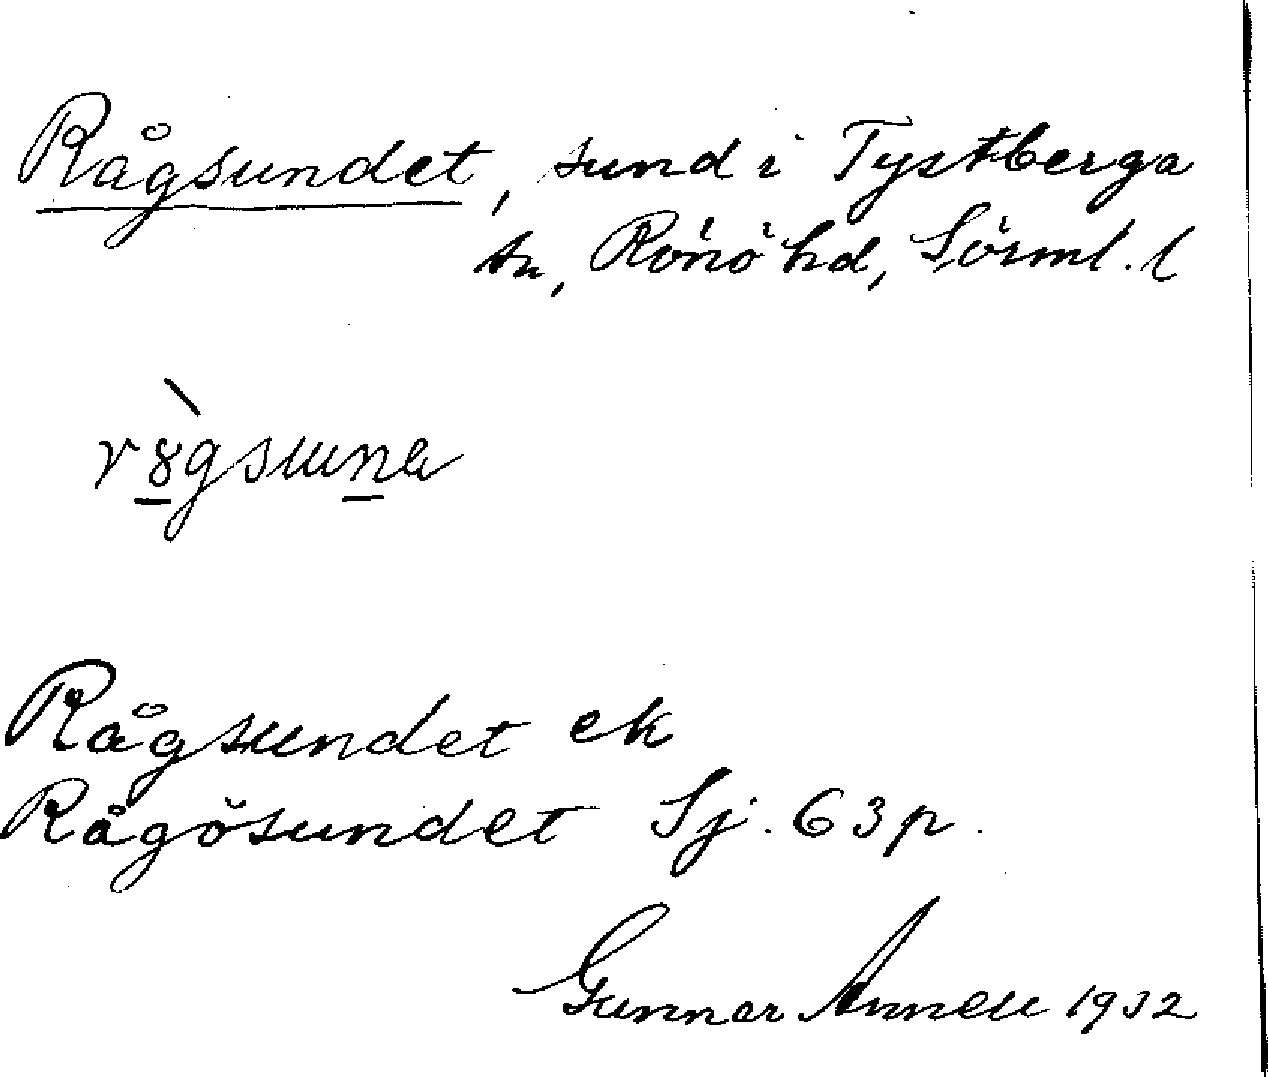 Rågsundet, sund i Tystberga
sn, Rönö hd, Sörml. l
Rågsundet ek
Rågösundet Sj. 63 p.
Gunnar Annell 1932